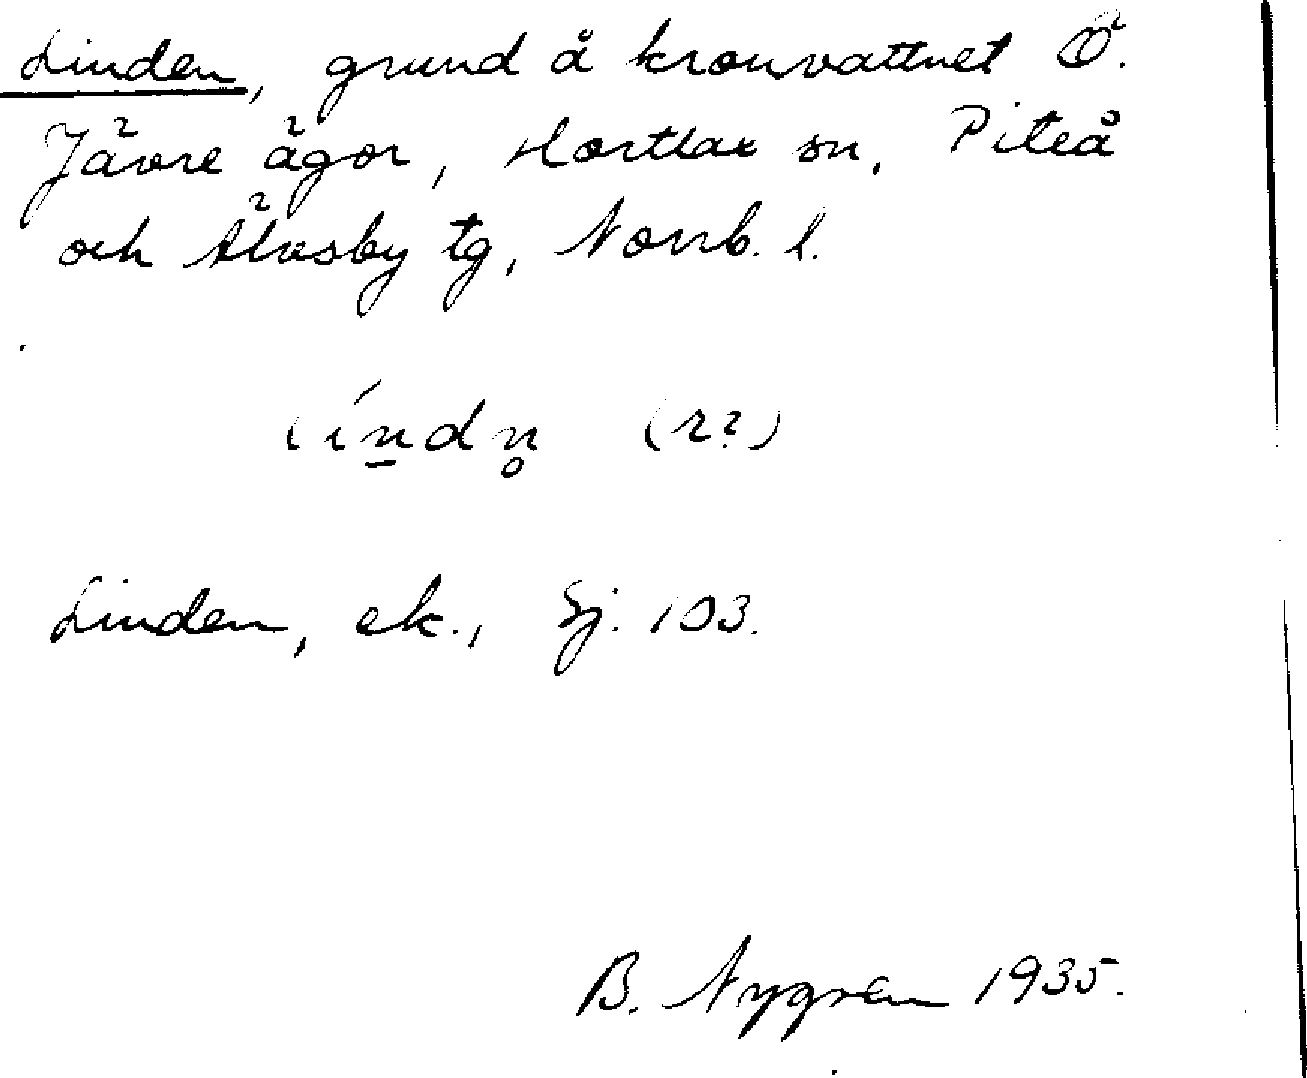 Linden, grund å kronvattnet Ö.
Jävre ägor, Hortlax sn, Piteå
och Älvsby tg, Norrb. l.
lín̲dn̥ (2?)
Linden, ek., Sj. 103.
B. Nygren 1935.